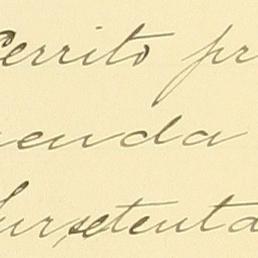 Cerrito pr
enda
Sur, setenta